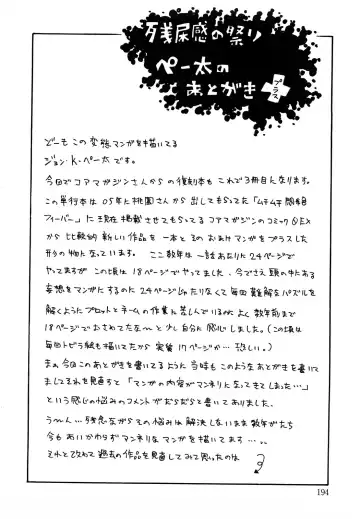 残尿感の祭り
ペー太の
あとがき
プラス
どーもこの変態マンガを描いてる
ジョン・K・ペー太です。
今回でコアマガジンさんからの復刻本もこれで3冊目になります。
この単行本は05年に桃園さんから出してもらってた「ムチムチ関羽目
フィーバー」に現在掲載させてもらってるコアマガジンのコミックαEX
から比較的新しい作品を一本とそのおまけマンガをプラスした
形の物になっています。 ここ数年は一話あたりに24ページで
やってますがこの頃は18ページでやってました、今でさえ頭の中にある
妄想をマンガにするのに24ページじゃ足りなくて毎回難解なパズルを
解くようにプロットとネームの作業に苦しんでいるのによく数年前まで
18ページでおさめてたな〜と少し自分に感心しました。(この頃は
毎回トビラ絵も描いてたから実質17ページか…恐しい。)
まぁ今回このあとがきを書いてるように当時もこのようなあとがきを書いて
ましてそれを見直すと「マンガの内容がマンネリになってきてしまった…」
という感じの悩みのコメントがだらだらと書いてありました、
う〜ん…残念ながらその悩みは解決しないまま数年がたち
今もあいかわらずマンネリなマンガを描いてます…。
それと改めて過去の作品を見直してみて思ったのは
194